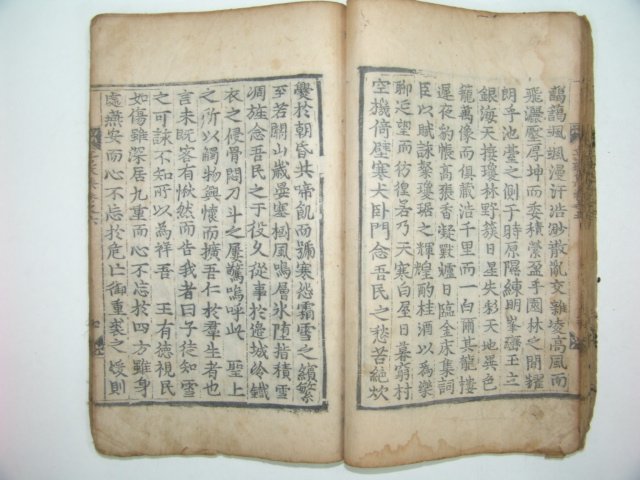 藹藹颯颯漫汗浩渺散亂交雜凌高風而
飛灑壓厚坤而委積縈盈乎園林之間耀
朗乎池臺之側于時原隰練明峯巒玉立
銀海天接瓊林野簇日星失彩天地異色
籠萬像而俱載浩千里而一白爾其龍樓
遲夜豹帳高褰香凝獸爐日臨金床集詞
臣以賦詠粲瓊琚之輝煌酌桂酒以爲樂
聊近望而彷徨若乃天寒白屋日暮窮村
空機倚壁寒犬卧門念吾民之愁苦絶炊
爨於朝昏共啼飢而號寒怨霜雪之繽繁
至若關山歲晏塞樹風鳴層氷堕指積雪
凋旌念吾民之于役久從事於邊城冷鐵
衣之侵骨悶刀斗之屢驚嗚呼此 聖上
之所以觸物興懷而擴吾仁於羣生者也
言未旣客有愀然而告我者曰子徒知雪
之可詠不知所以爲祥吾 王有德視民
如傷雖深居九重而心不忘於四方雖身
處燕安而心不忘於危亡御重裘之煖則